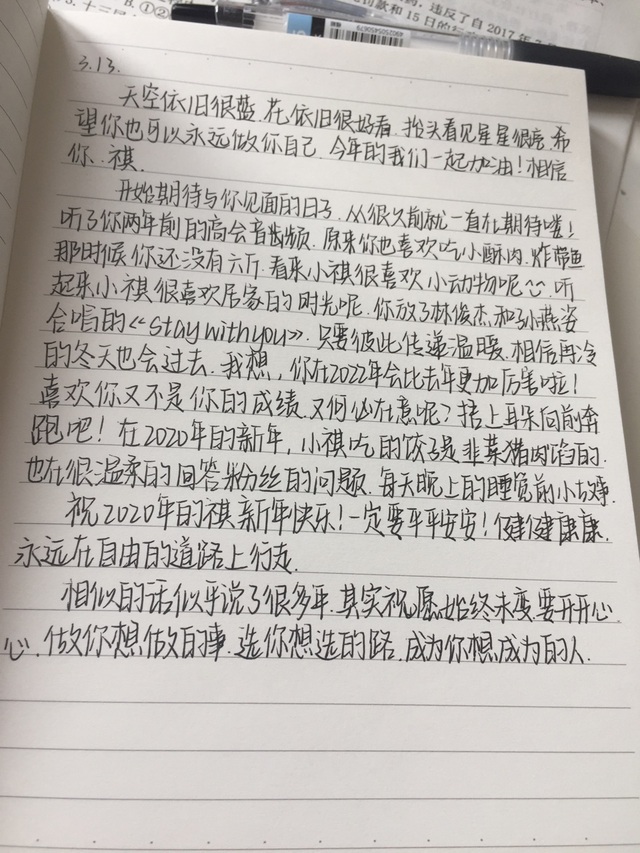 药，违反了自2017年
付款和15日的
B.①②
4902505450679
3.13.
天空依旧很蓝.花依旧很好看.抬头看见星星很亮.希
望你也可以永远做你自己.今年的我们一起加油！相信
你.祺.
开始期待与你见面的日子.从很久前就一直在期待喽！
听了你两年前的高会音频.原来你也喜欢吃小酥肉.炸带鱼
那时候你还没有六斤.看来小祺很喜欢小动物呢 听
起来小祺很喜欢居家的时光呢.你放了林俊杰和孙燕姿
合唱的《stay with you》.只要彼此传递温暖.相信再冷
的冬天也会过去.我想，你在2022年会比去年更加厉害啦！
喜欢你又不是你的成绩.又何必在意呢？捂上耳朵向前奔
跑吧！在2020年的新年，小祺吃的饺子是韭菜猪肉馅的.
也在很温柔的回答粉丝的问题.每天晚上的睡觉前小故事.
祝2020年的祺新年快乐！一定要平平安安！健健康康.
永远在自由的道路上行走.
相似的话似乎说了很多年.其实祝愿始终未变.要开开心
心.做你想做的事.选你想选的路.成为你想成为的人.